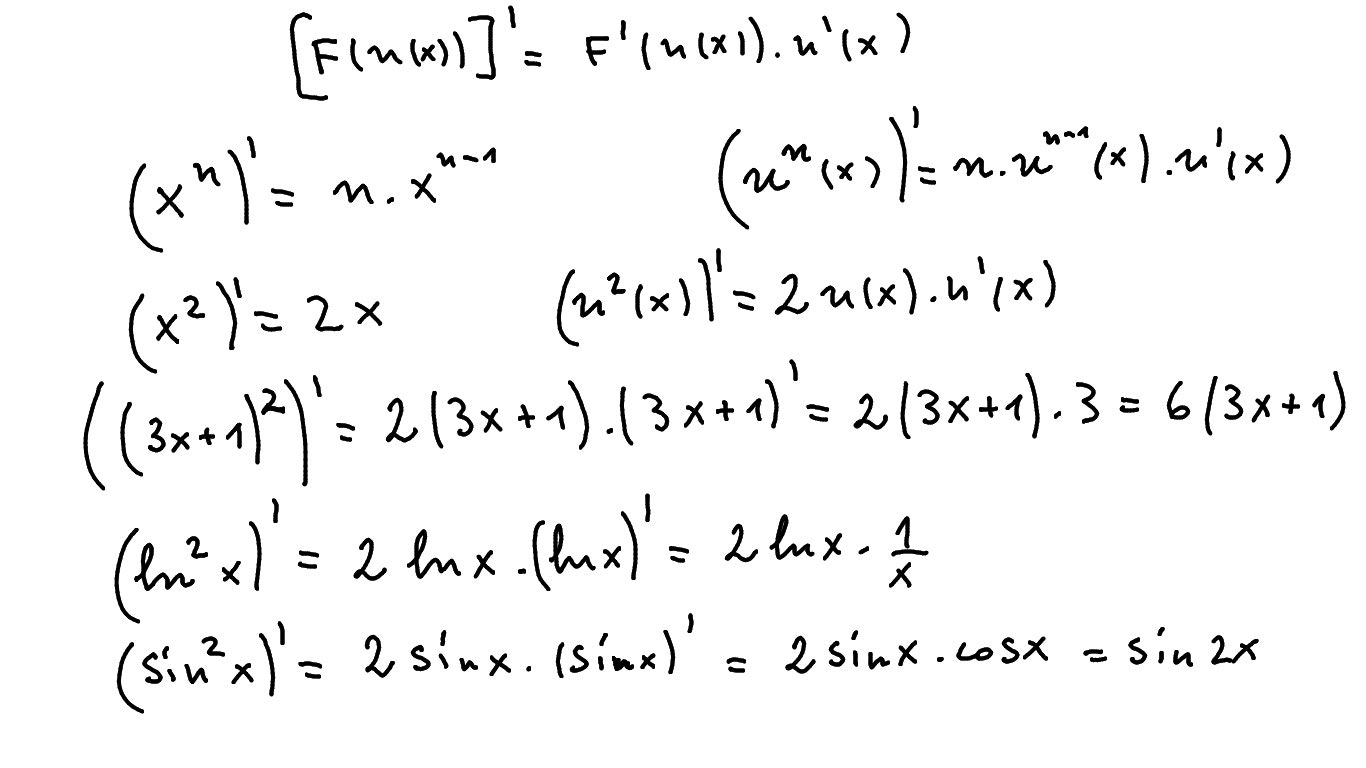 [F(u(x))]' = F'(u(x)).u'(x)
(xⁿ)' = n.xⁿ⁻¹ (uⁿ(x))' = n.uⁿ⁻¹(x).u'(x)
(x²)' = 2x (u²(x))' = 2u(x).u'(x)
((3x+1)²)' = 2(3x+1).(3x+1)' = 2(3x+1).3 = 6(3x+1)
(ln²x)' = 2 lnx.(lnx)' = 2 lnx.1/x
(sin²x)' = 2 sinx.(sinx)' = 2 sinx.cosx = sin 2x